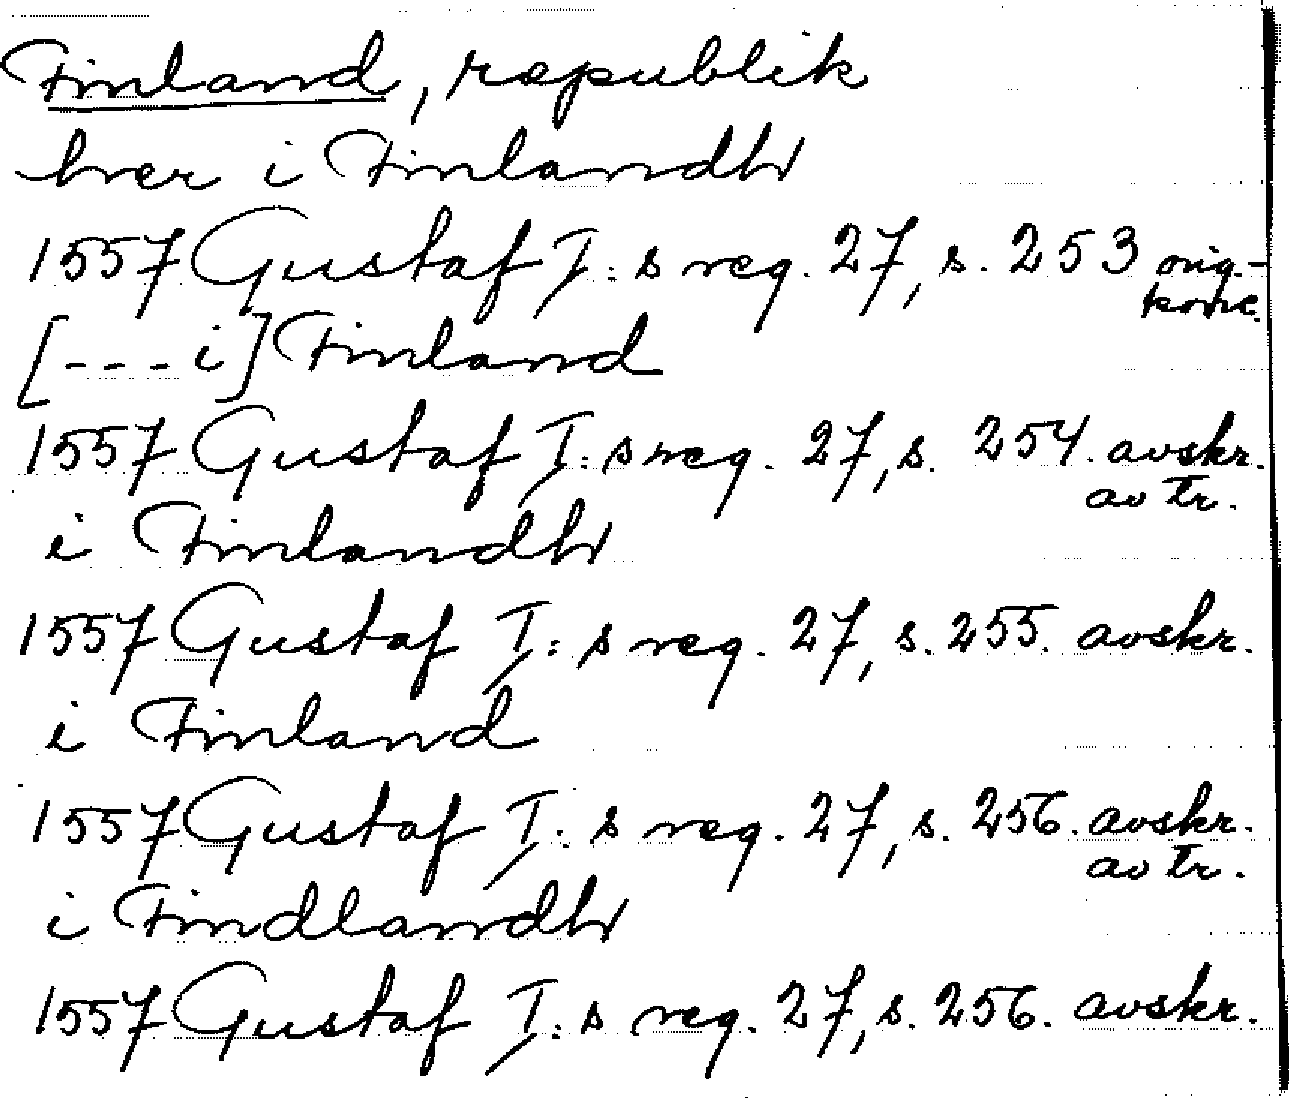 Finland, republik
hver i Finlandh
1557 Gustaf I: s reg. 27, s. 253 orig.-
konc.
[--- i] Finland
1557 Gustaf I: s reg. 27, s. 254. avskr.
av tr.
i Finlandh
1557 Gustaf I: s reg. 27, s. 255. avskr.
i Finland
1557 Gustaf I: s reg. 27, s. 256. avskr.
av tr.
i Findlandh
1557 Gustaf I: s reg. 27, s. 256. avskr.